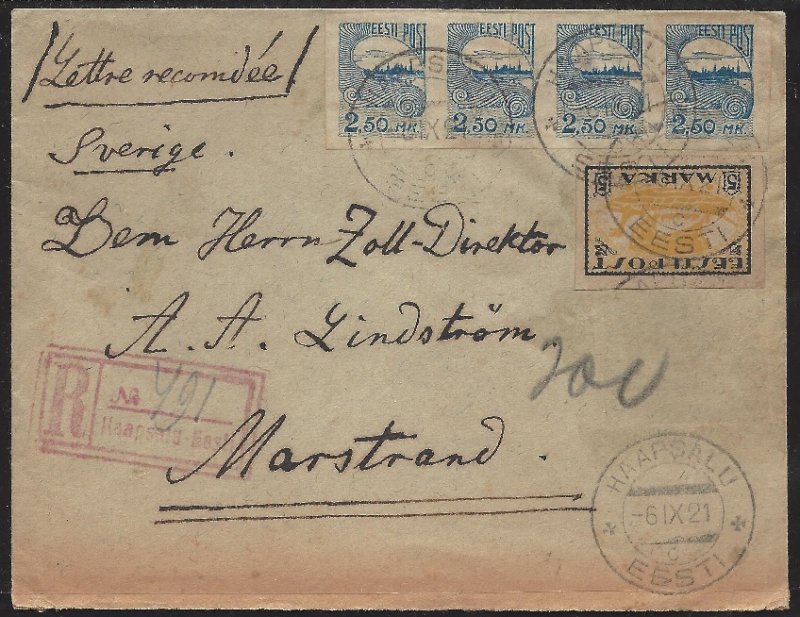 EESTI POST EESTI POST EESTI POST EESTI POST
2,50 MK. 2,50 MK. 2,50 MK. 2,50 MK.
Lettre recomdée
HAAPSALU
EESTI
Sverige.
5 MARKA 5
EESTI POST
Dem Herrn Zoll-Direktor
A. A. Lindström
R № 491
Haapsalu Eesti
Marstrand.
HAAPSALU
-6 IX 21
C
EESTI